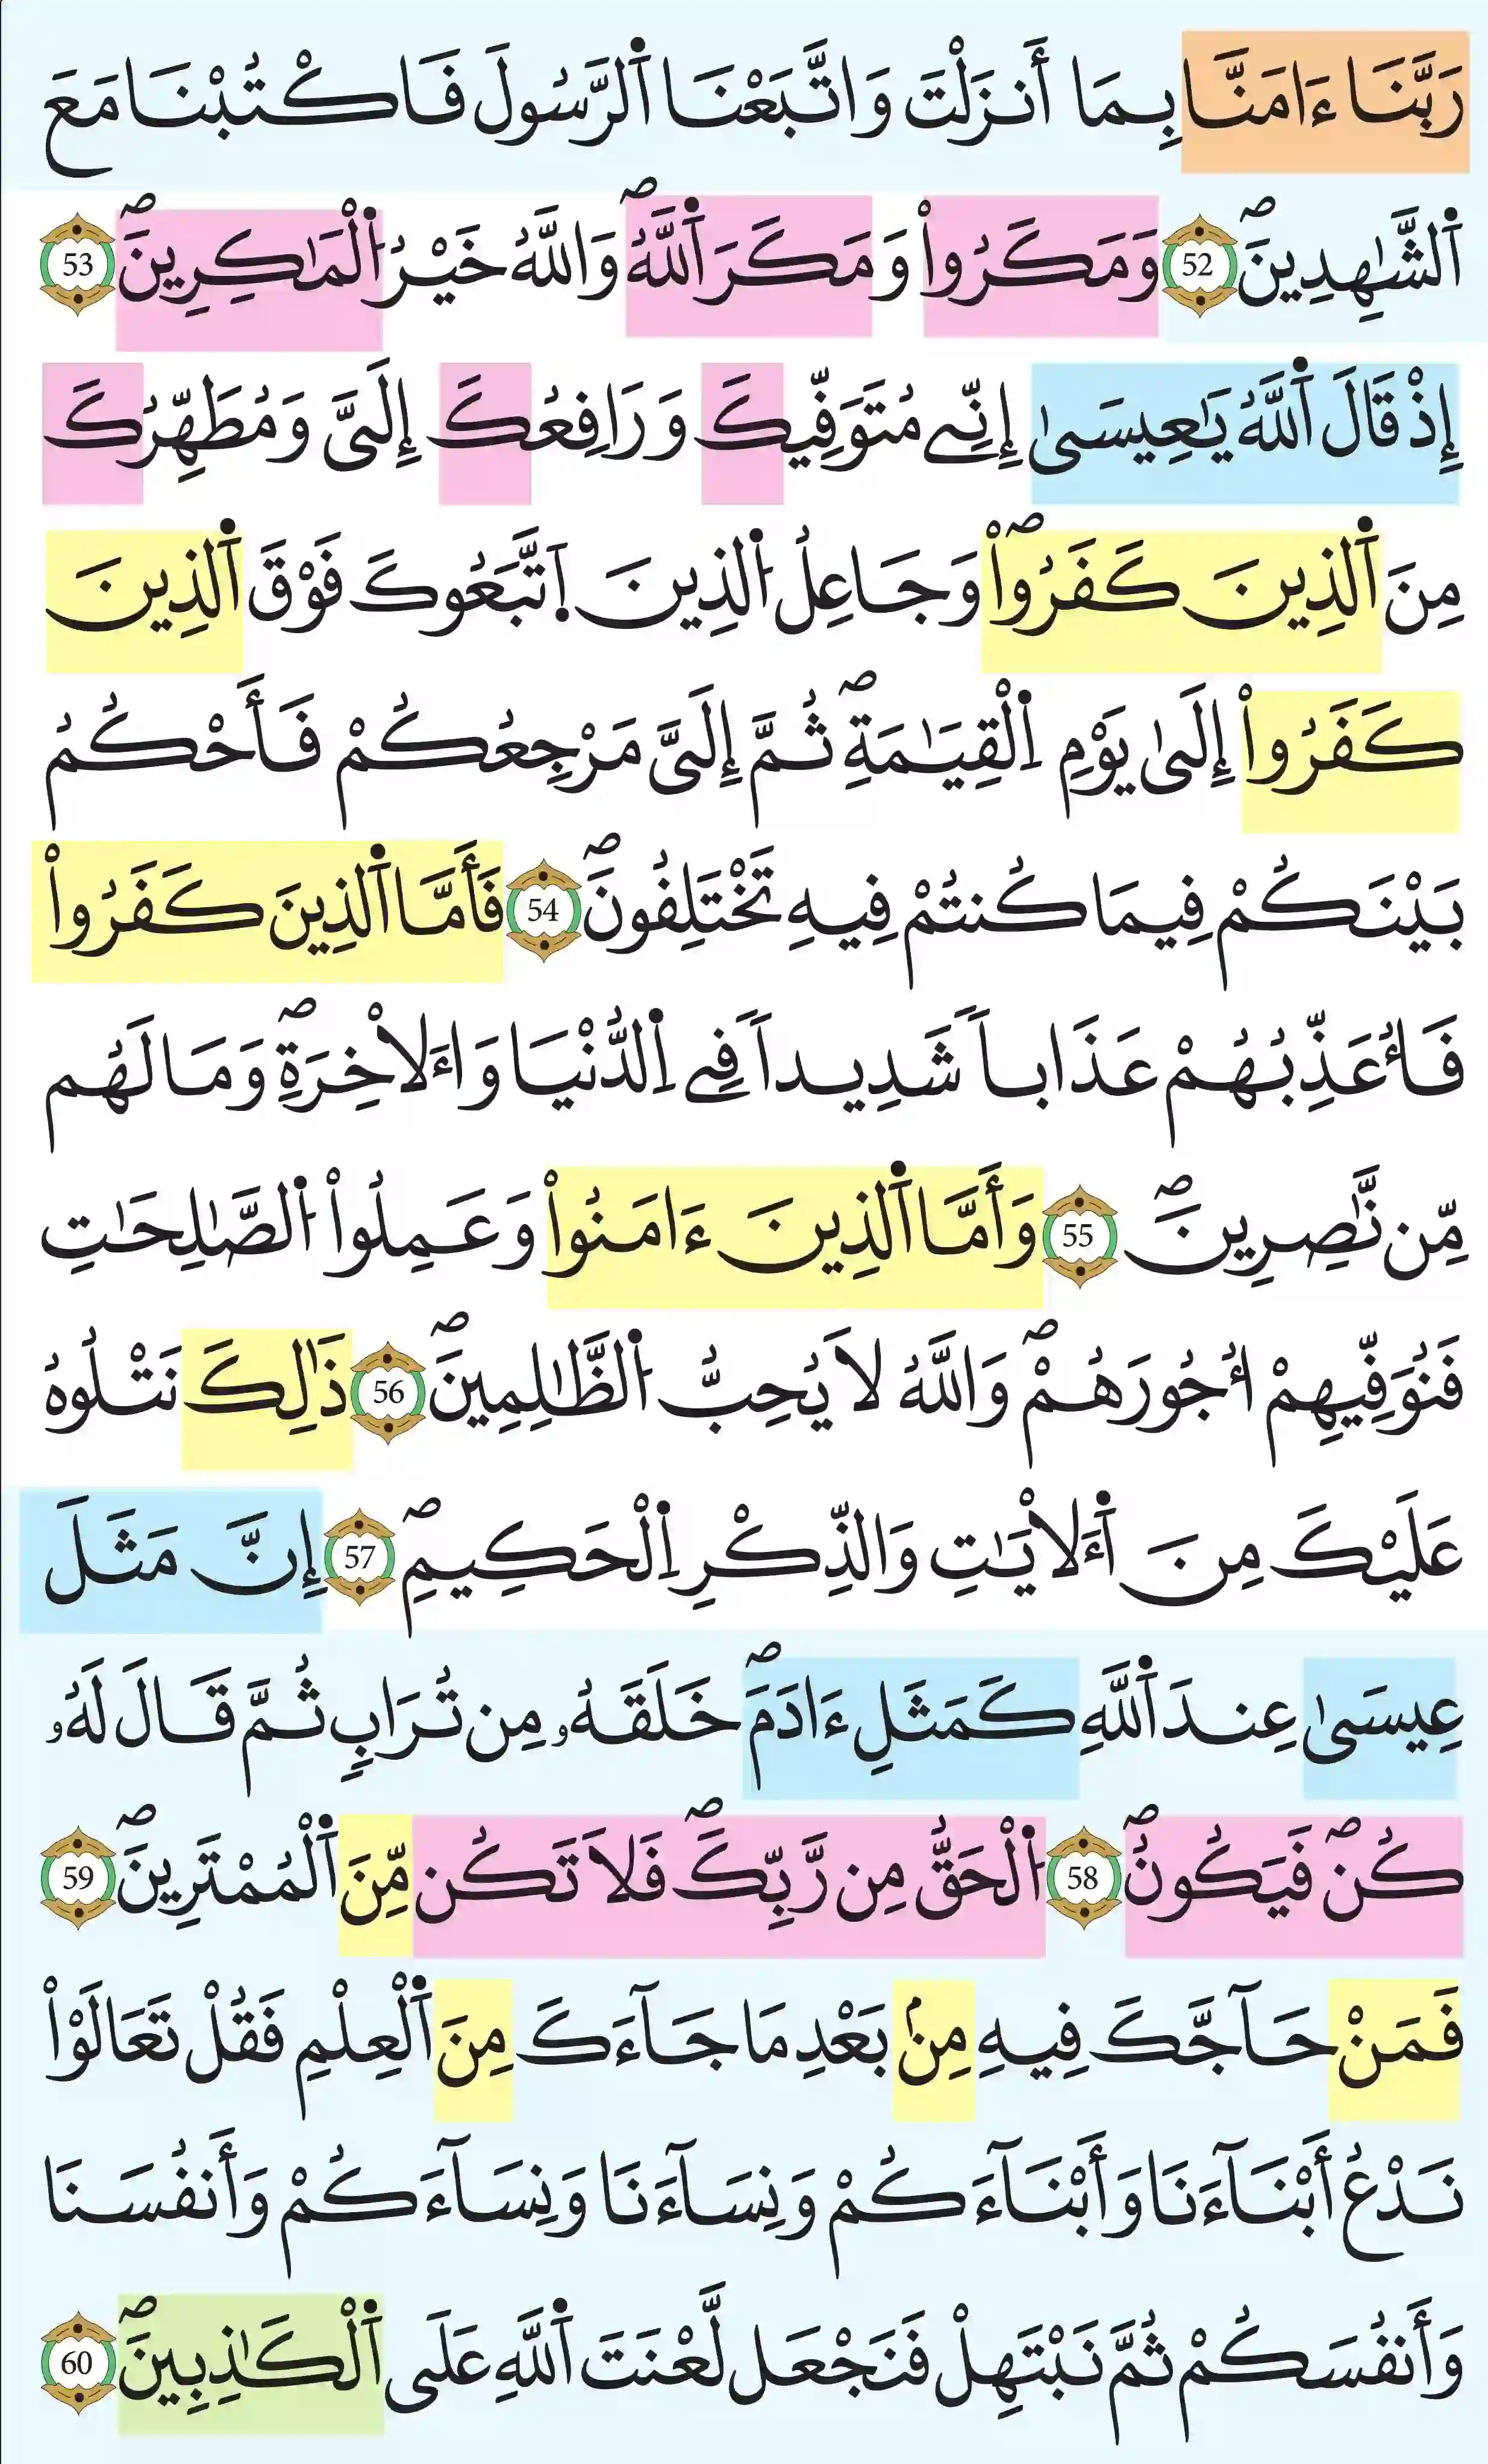 رَبَّنَا ءَامَنَّا بِمَا أَنزَلْتَ وَاتَّبَعْنَا اَ۬لرَّسُولَ فَاكْتُبْنَا مَعَ
اَ۬لشَّٰهِدِينَۖ 52 وَمَكَرُواْ وَمَكَرَ اَ۬للَّهُۖ وَاللَّهُ خَيْرُ اُ۬لْمَٰكِرِينَۖ 53
إِذْ قَالَ اَ۬للَّهُ يَٰعِيسَىٰ إِنِّے مُتَوَفِّيكَ وَرَافِعُكَ إِلَىَّ وَمُطَهِّرُكَ
مِنَ اَ۬لذِينَ كَفَرُواْۖ وَجَاعِلُ اُ۬لذِينَ اَ۪تَّبَعُوكَ فَوْقَ اَ۬لذِينَ
كَفَرُواْ إِلَىٰ يَوْمِ اِ۬لْقِيَٰمَةِۖ ثُمَّ إِلَىَّ مَرْجِعُكُمْ فَأَحْكُمُ
بَيْنَكُمْ فِيمَا كُنتُمْ فِيهِ تَخْتَلِفُونَۖ 54 فَأَمَّا اَ۬لذِينَ كَفَرُواْ
فَأُعَذِّبُهُمْ عَذَاباٗ شَدِيداٗ فِے اِ۬لدُّنْيَا وَاءَلَاخِرَةِۖ وَمَا لَهُم
مِّن نَّٰصِرِينَۖ 55 وَأَمَّا اَ۬لذِينَ ءَامَنُواْ وَعَمِلُواْ اُ۬لصَّٰلِحَٰتِ
فَنُوَفِّيهِمْ أُجُورَهُمْۖ وَاللَّهُ لَا يُحِبُّ اُ۬لظَّٰلِمِينَۖ 56 ذَٰلِكَ نَتْلُوهُ
عَلَيْكَ مِنَ اَ۬ءَلَايَٰتِ وَالذِّكْرِ اِ۬لْحَكِيمِۖ 57 إِنَّ مَثَلَ
عِيسَىٰ عِندَ اَ۬للَّهِ كَمَثَلِ ءَادَمَۖ خَلَقَهُۥ مِن تُرَابٖ ثُمَّ قَالَ لَهُۥ
كُنۖ فَيَكُونُۖ 58 اُ۬لْحَقُّ مِن رَّبِّكَۖ فَلَا تَكُن مِّنَ اَ۬لْمُمْتَرِينَۖ 59
فَمَنْ حَآجَّكَ فِيهِ مِنۢ بَعْدِ مَا جَآءَكَ مِنَ اَ۬لْعِلْمِ فَقُلْ تَعَالَوْاْ
نَدْعُ أَبْنَآءَنَا وَأَبْنَآءَكُمْ وَنِسَآءَنَا وَنِسَآءَكُمْ وَأَنفُسَنَا
وَأَنفُسَكُمْ ثُمَّ نَبْتَهِلْ فَنَجْعَل لَّعْنَتَ اَ۬للَّهِ عَلَى اَ۬لْكَٰذِبِينَۖ 60